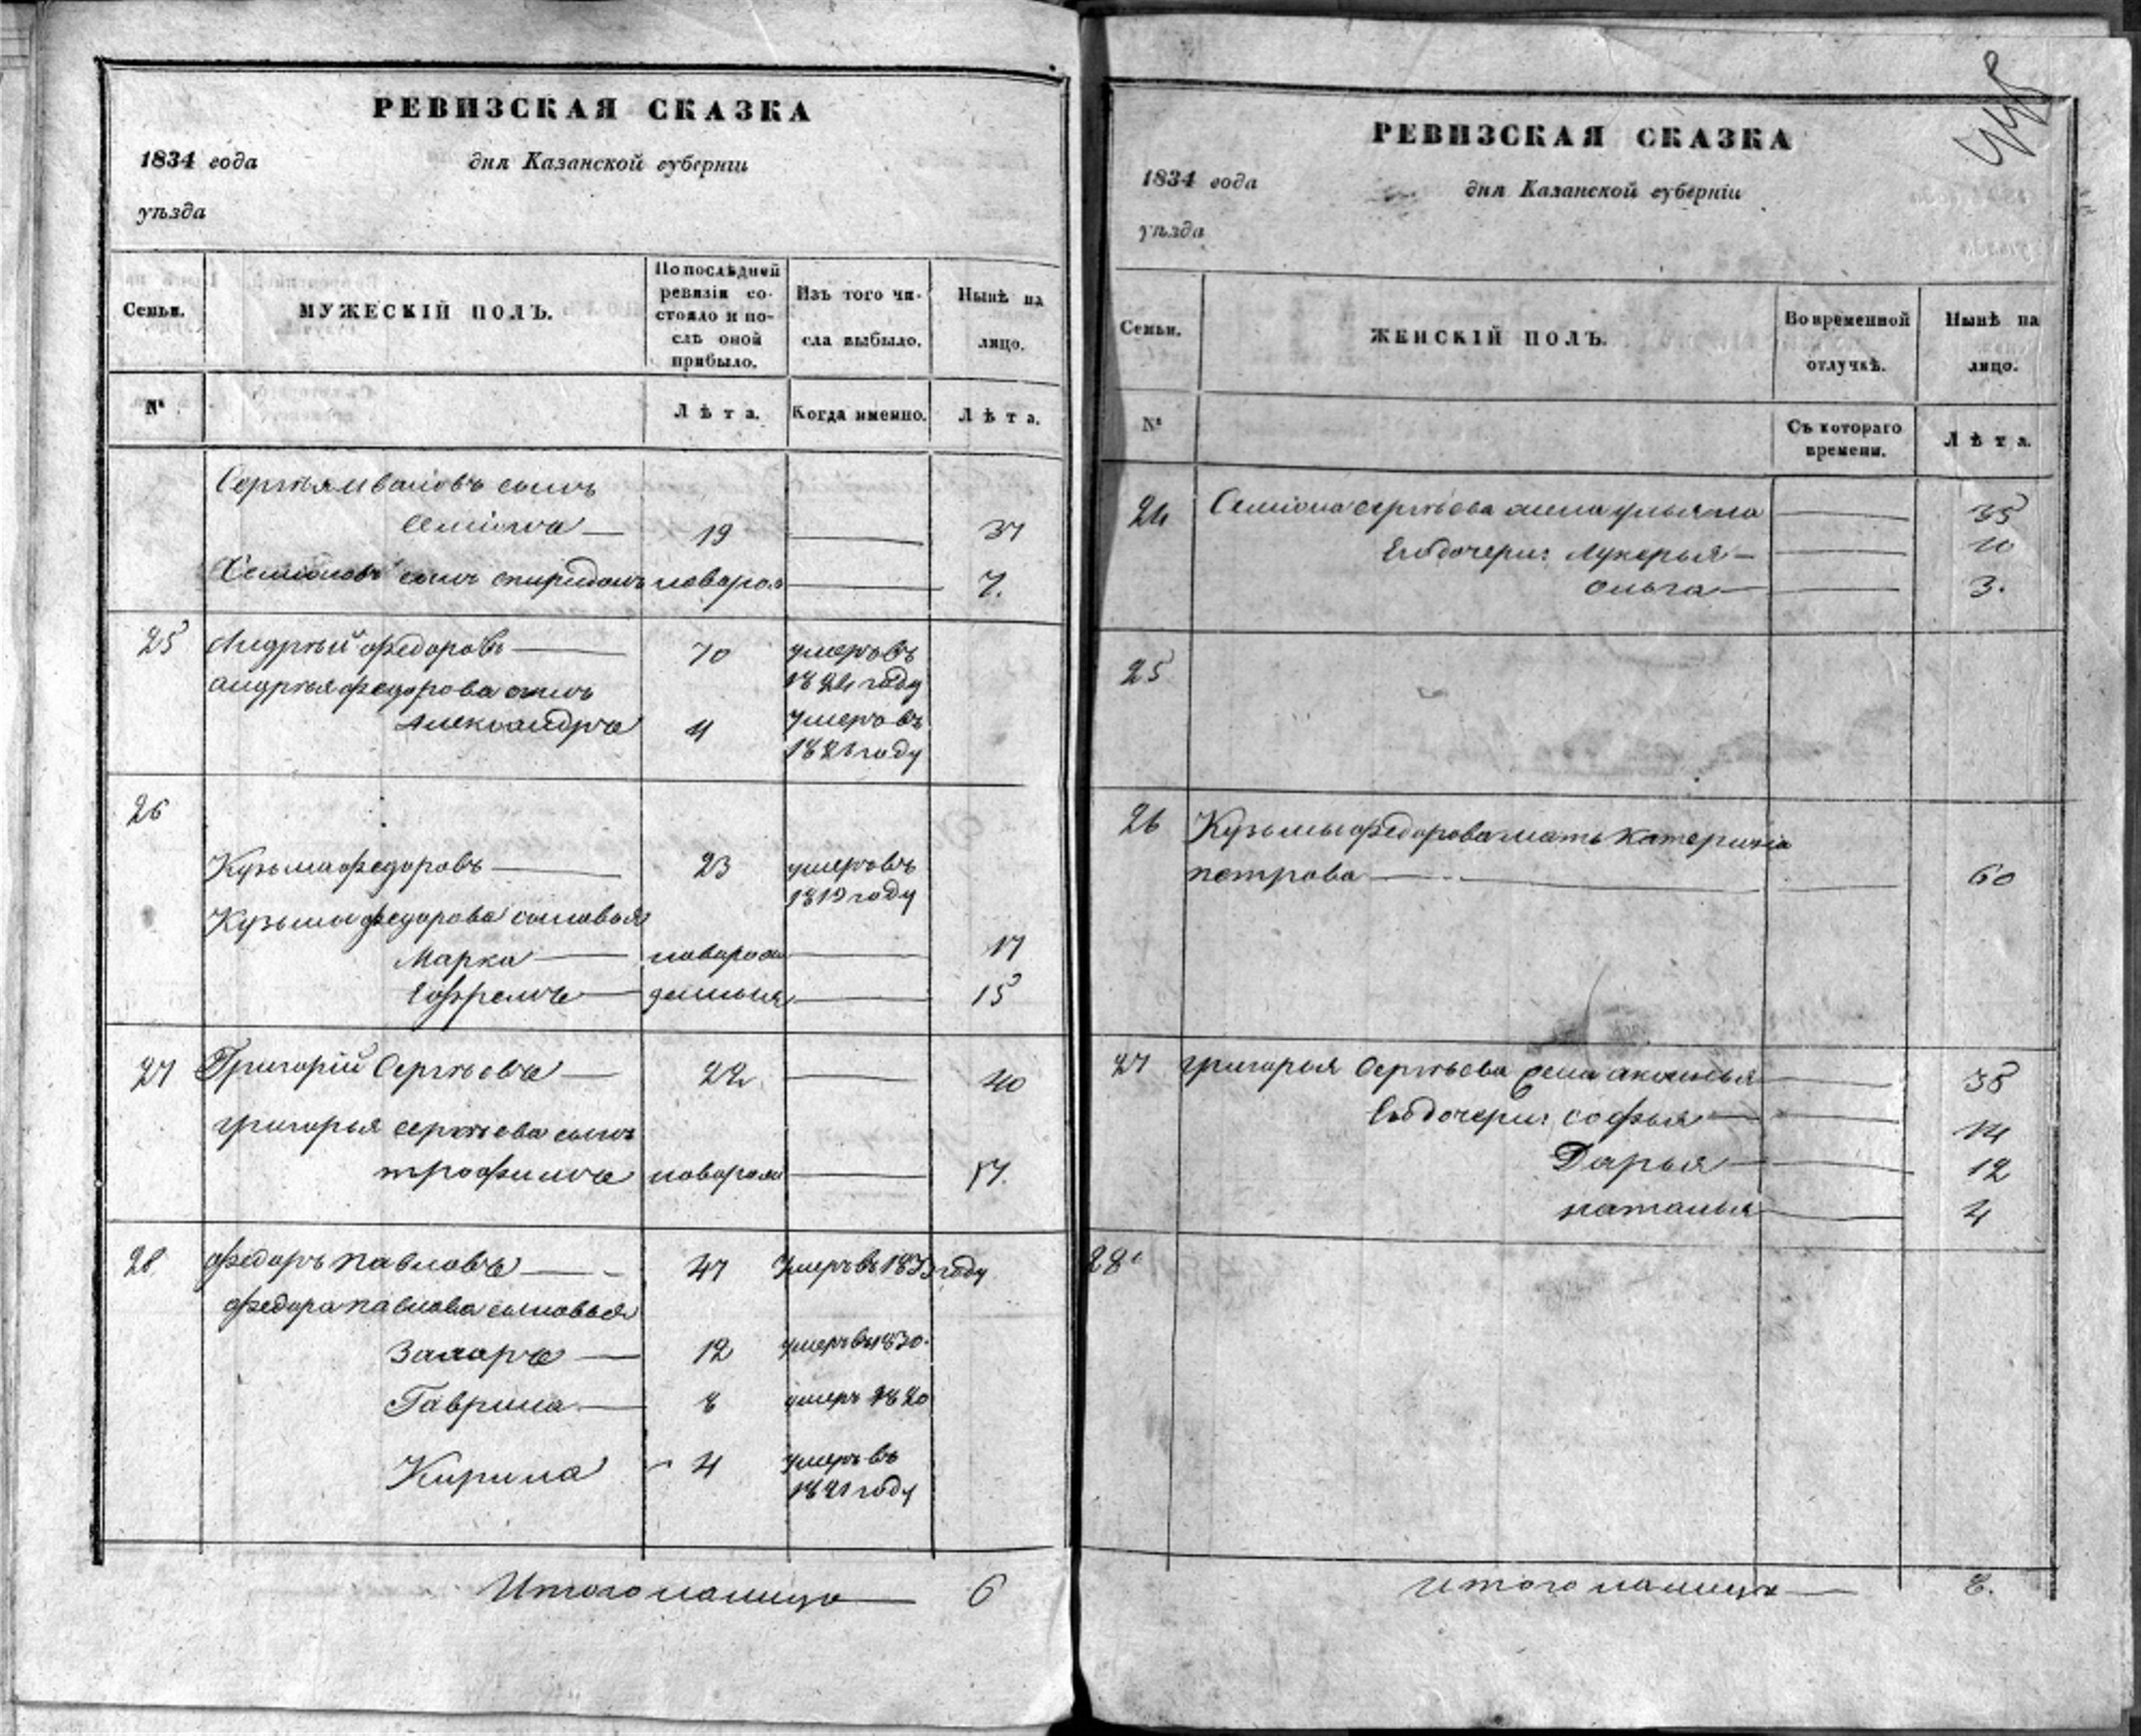 РЕВИЗСКАЯ СКАЗКА
1834 года дня Казанской губерніи
уѣзда
Семьи.
МУЖЕСКІЙ ПОЛЪ.
По послѣдней
ревизіи со-
стояло и по-
слѣ оной
прибыло.
Изъ того чи-
сла выбыло.
Нынѣ на
лицо.
№
Лѣта.
Когда именно.
Лѣта.
Сергѣя Иванова сынъ
Семіонъ 19 37
Семіоновъ сынъ спиридонъ новорож 7.
25 Андрѣй Федоровъ 70 умеръ въ
1824 году
андрѣя федорова сынъ
Александръ 4 умеръ въ
1821 году
26
Кузьма федоровъ 23 умеръ въ
1819 году
Кузьмы федорова сыновья
Марка новорож 17
Ефремъ денныя 15
27 Григорій Сергѣевъ 22 40
григорья сергѣева сынъ
трофимъ новорож 17.
28 федоръ павловъ 47 умеръ въ 1833 году
федора павлова сыновья
Захаръ 12 умеръ въ 1830.
Гаврила 8 умеръ 1820
Кирила 4 умеръ въ
1821 году
Итого налицо 6
РЕВИЗСКАЯ СКАЗКА
1834 года дня Казанской губерніи
уѣзда
Семьи.
ЖЕНСКІЙ ПОЛЪ.
Во временной
отлучкѣ.
Нынѣ на
лицо.
№
Съ котораго
времени.
Лѣта.
24 Семіона сергѣева жена ульяна 35
Ево дочери: Лукерья 10
Ольга 3.
25
26 Кузьмы федорова мать Катерина
петрова 60
27 григорья Сергѣева жена акулинья 38
Ево дочери: софья 14
Дарья 12
наталья 4
28
итого налицо 8.